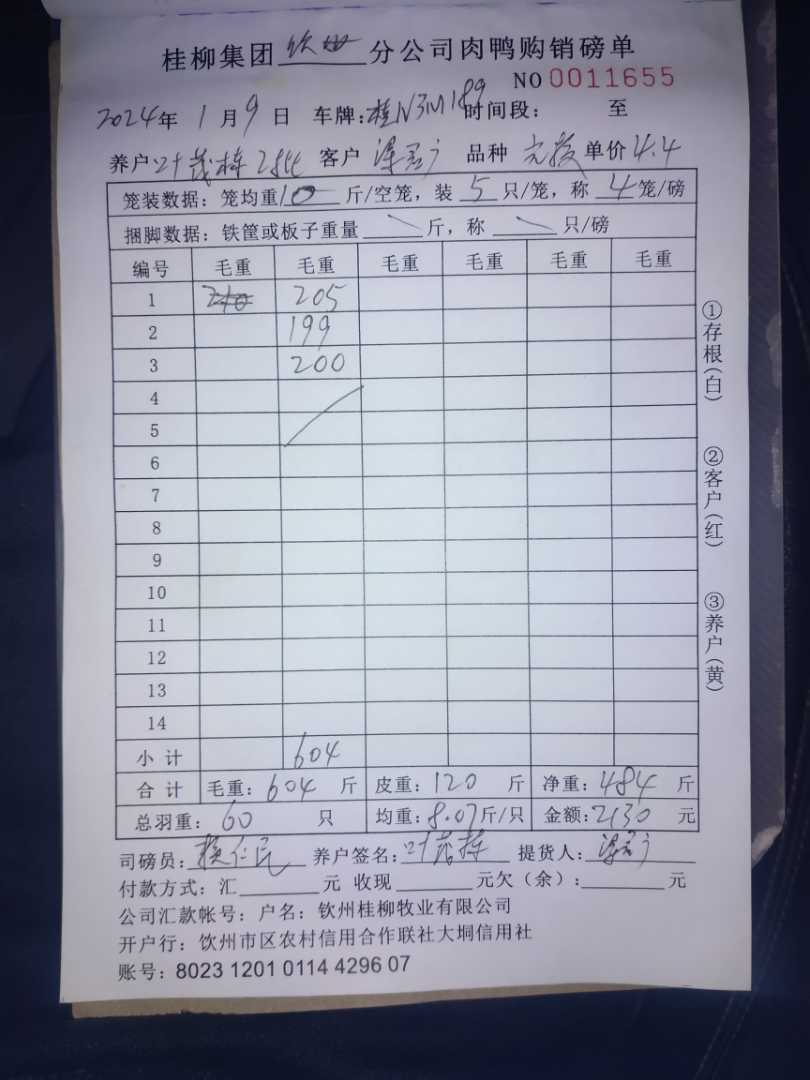 桂柳集团 钦州 分公司肉鸭购销磅单
NO 0011655
2024年 1月9日 车牌:桂N3M189 时间段: 至
养户:叶茂栋 客户 品种 单价4.4
笼装数据: 笼均重10斤/空笼, 装 5 只/笼, 称 4笼/磅
捆脚数据: 铁筐或板子重量 斤, 称 只/磅
编号 毛重 毛重 毛重 毛重 毛重 毛重
1 210 205
2 199
3 200
4
5
6
7
8
9
10
11
12
13
14
小计 604
合计 毛重: 604 斤 皮重: 120 斤 净重: 484 斤
总羽重: 60 只 均重: 8.07斤/只 金额:2130 元
司磅员: 养户签名: 叶茂栋 提货人:
付款方式: 汇 元 收现 元欠(余): 元
公司汇款帐号: 户名: 钦州桂柳牧业有限公司
开户行: 钦州市区农村信用合作联社大垌信用社
账号: 8023 1201 0114 4296 07
①存根(白)
②客户(红)
③养户(黄)